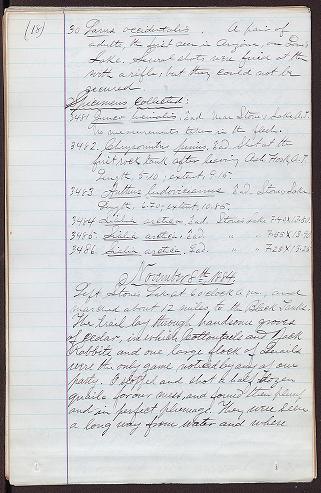 (18)
30 Larus occidentalis. A pair of
adults, the first seen in Arizona, on Stones
Lake. Several shots were fired at them
with a rifle, but they could not be
secured
Specimens Collected:
3481 Junco hiemalis, 2ad. Near Stones Lake A.T.
No measurements taken in the flesh.
3482. pinus, 2ad. Shot at the
first rock tank after leaving Ash Fork A.T.
Length 5.10; extent, 9.15.
3483 Anthus ludovicianus 2ad. Stones Lake
Length, 6.70; extent, 10.85.
3484 Sialia arctica, 2ad. Stones Lake 7.40X13.50.
3485 Sialia arctica, 2ad. " " 7.55X13.
3486 Sialia arctica, 2ad. " " 7.25X13.25
November 8th, 1884.
Left Stones Lake at 6 o'clock a.m., and
marched about 12 miles to the Black Tanks.
The trail lay through handsome groves
of cedar, in which Cottontails and Jack
Rabbits and one large flock of Quails
were the only game noticed by any of our
party. I stopped and shot a half dozen
quails for our mess, and found them plump
and in perfect plumage. They were seen
a long way from water and where